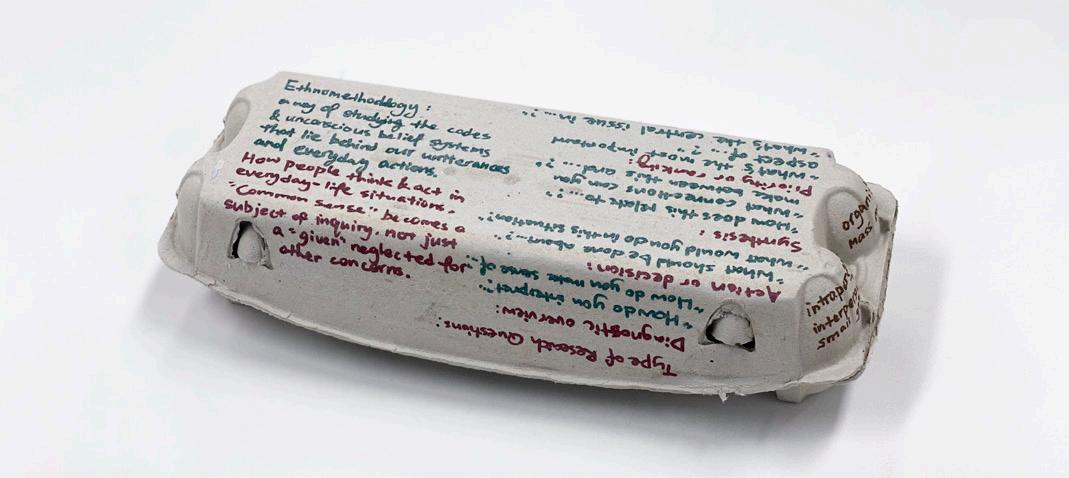 Ethnomethodology:
a way of studying the codes
& unconscious belief systems
that lie behind our utterances
and everyday actions.
How people think & act in
everyday-life situations.
"Common sense" becomes a
subject of inquiry, not just
a "given" neglected for
other concerns.
Type of Research Questions:
Diagnostic overview:
"How do you interpret"
"How do you make sense of"
Action or decision:
"What should be done about...?"
"What would you do in this situation"
Synthesis:
"How does this relate to...?"
"What connections can you
make between this and...?"
Prioriry or ranking:
"What's the most important
aspect of...?"
"What's the central issue in...?"
organi
mass
interper
small